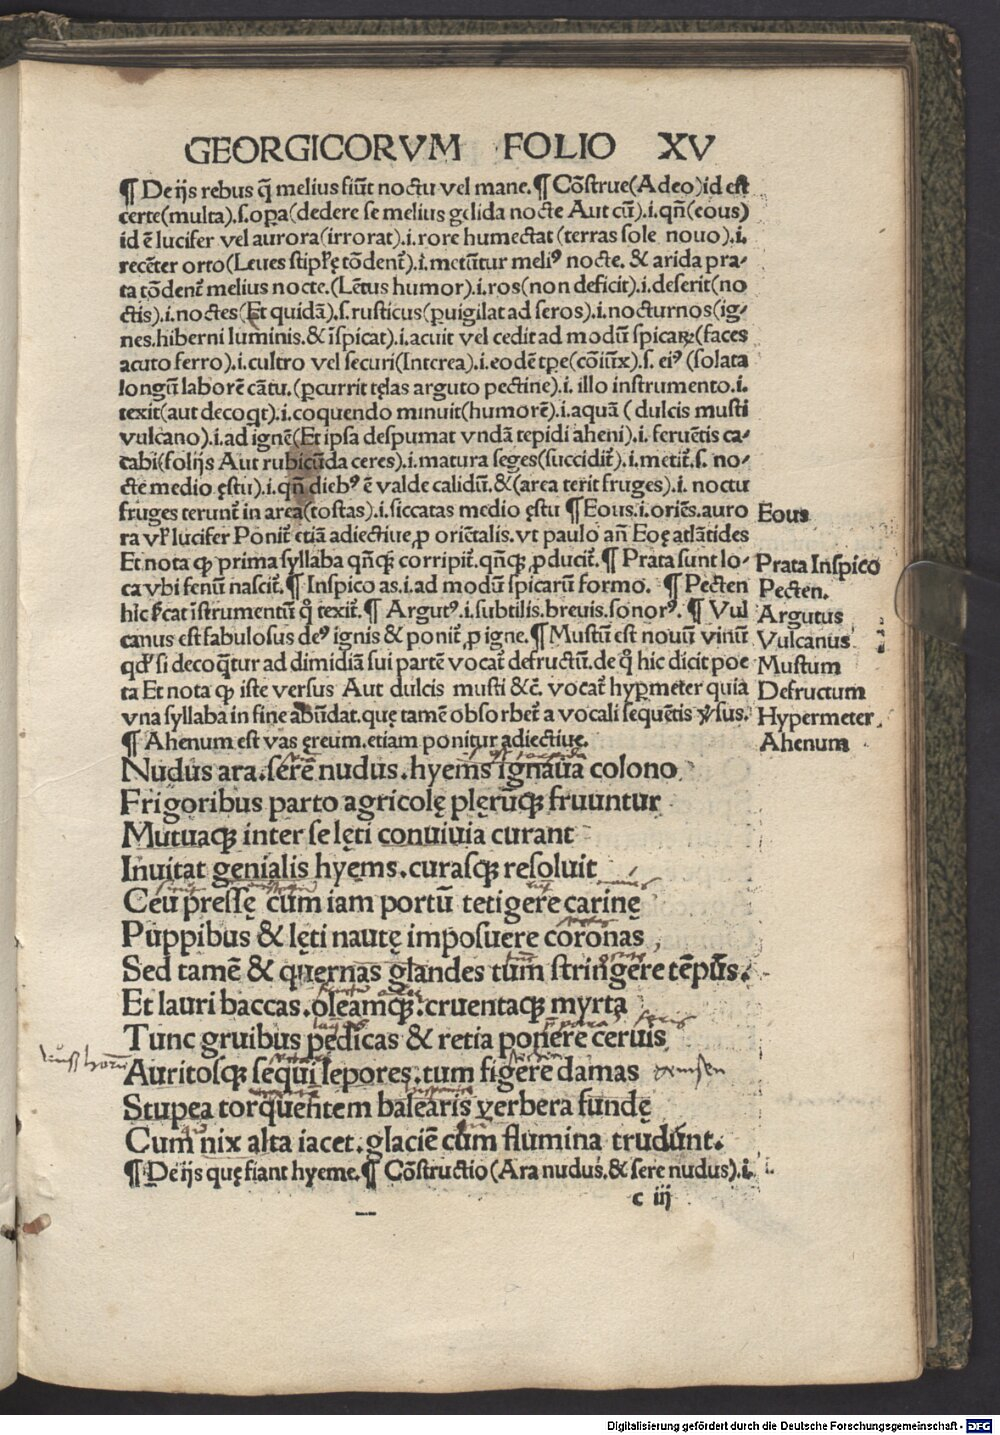 GEORGICORVM FOLIO XV
¶ De ijs rebus q̄ melius fiūt noctu vel mane. ¶ Cōstrue(Adeo)id est
certe(multa).s.opa(dedere se melius gelida nocte Aut cū).i.qñ(eous)
id ē lucifer vel aurora(irrorat).i.rore humectat(terras sole nouo).i.
recēter orto(Leues stiplę tōdent̄).i.metūtur meliꝰ nocte. & arida pra-
ta tōdent̄ melius nocte.(Lētus humor).i.ros(non deficit).i.deserit(no
ctis).i.noctes(Et quidā).s.rusticus(puigilat ad seros).i.nocturnos(ig-
nes.hiberni luminis.& īspicat).i.acuit vel cedit ad modū spicaꝝ(faces
acuto ferro).i.cultro vel securi(Interea).i.eodē tpe(cōiūx).s.eiꝰ(solata
longū laborē cātu.(pcurrit tęlas arguto pectine).i. illo instrumento.i.
texit(aut decoqt).i.coquendo minuit(humorē).i.aquā ( dulcis musti
vulcano).i.ad ignē(Et ipsa despumat vndā tepidi aheni).i. feruētis ca-
cabi(folijs Aut rubicūda ceres).i.matura seges(succidit̄).i.metit̄.s. no-
cte medio ęstu).i.qñ diebꝰ ē valde calidū.&(area terit fruges).i. noctu
fruges terunt̄ in area(tostas).i.siccatas medio ęstu ¶ Eous.i.oriēs.auro
ra vl' lucifer Ponit̄ etiā adiectiue,p oriētalis.vt paulo añ Eoę atlātides
Et nota ꝙ prima syllaba qñꝗ corripit̄.qñꝗ ,pducit̄. ¶ Prata sunt lo-
ca vbi fenū nascit̄. ¶ Inspico as.i.ad modū spicarū formo. ¶ Pecten
hic s'cat īstrumentū q̊ texit̄. ¶ Argutꝰ.i.subtilis.breuis.sonorꝰ. ¶ Vul
canus est fabulosus deꝰ ignis & ponit̄ ,p igne. ¶ Mustū est nouū vinū
qd' si decoq̄tur ad dimidiā sui partē vocat̄ defructū.de q̊ hic dicit poe
ta Et nota ꝙ iste versus Aut dulcis musti &c̄. vocat̄ hypmeter quia
vna syllaba in fine abūdat.quę tamē obsorbet̄ a vocali sequētis v̓sus.
¶ Ahenum est vas ęreum.etiam ponitur adiectiue.
Eous
Prata Inspico
Pecten.
Argutus
Vulcanus
Mustum
Defructum
Hypermeter
Ahenum
Nudus ara.serē nudus.hyems ignaua colono
Frigoribus parto agricolę plęrūꝗ fruuntur
Mutuaꝗ inter se lęti conuiuia curant
Inuitat genialis hyems.curasꝗ resoluit
Ceu pressę cum iam portū tetigere carinę
Puppibus & lęti nautę imposuere coronas
Sed tamē & quernas glandes tum stringere tēpus.
Et lauri baccas.oleamꝗ.cruentaꝗ myrta
Tunc gruibus pedicas & retia ponere ceruis
Auritosꝗ sequi lepores.tum figere damas
Stupea torquentem balearis verbera fundę
Cum nix alta iacet.glaciē cum flumina trudunt.
¶ De ijs quę fiant hyeme. ¶ Cōstructio(Ara nudus.& sere nudus).i.
c iij
Digitalisierung gefördert durch die Deutsche Forschungsgemeinschaft - DFG